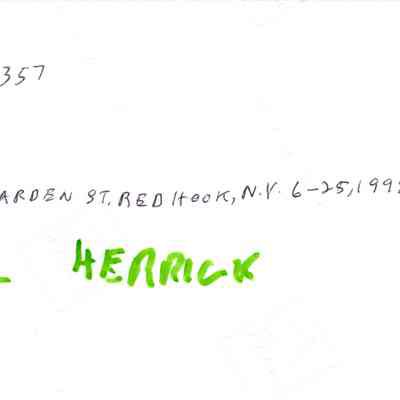 357
ARDEN ST. RED HOOK, N.Y. 6-25, 199
HERRICK